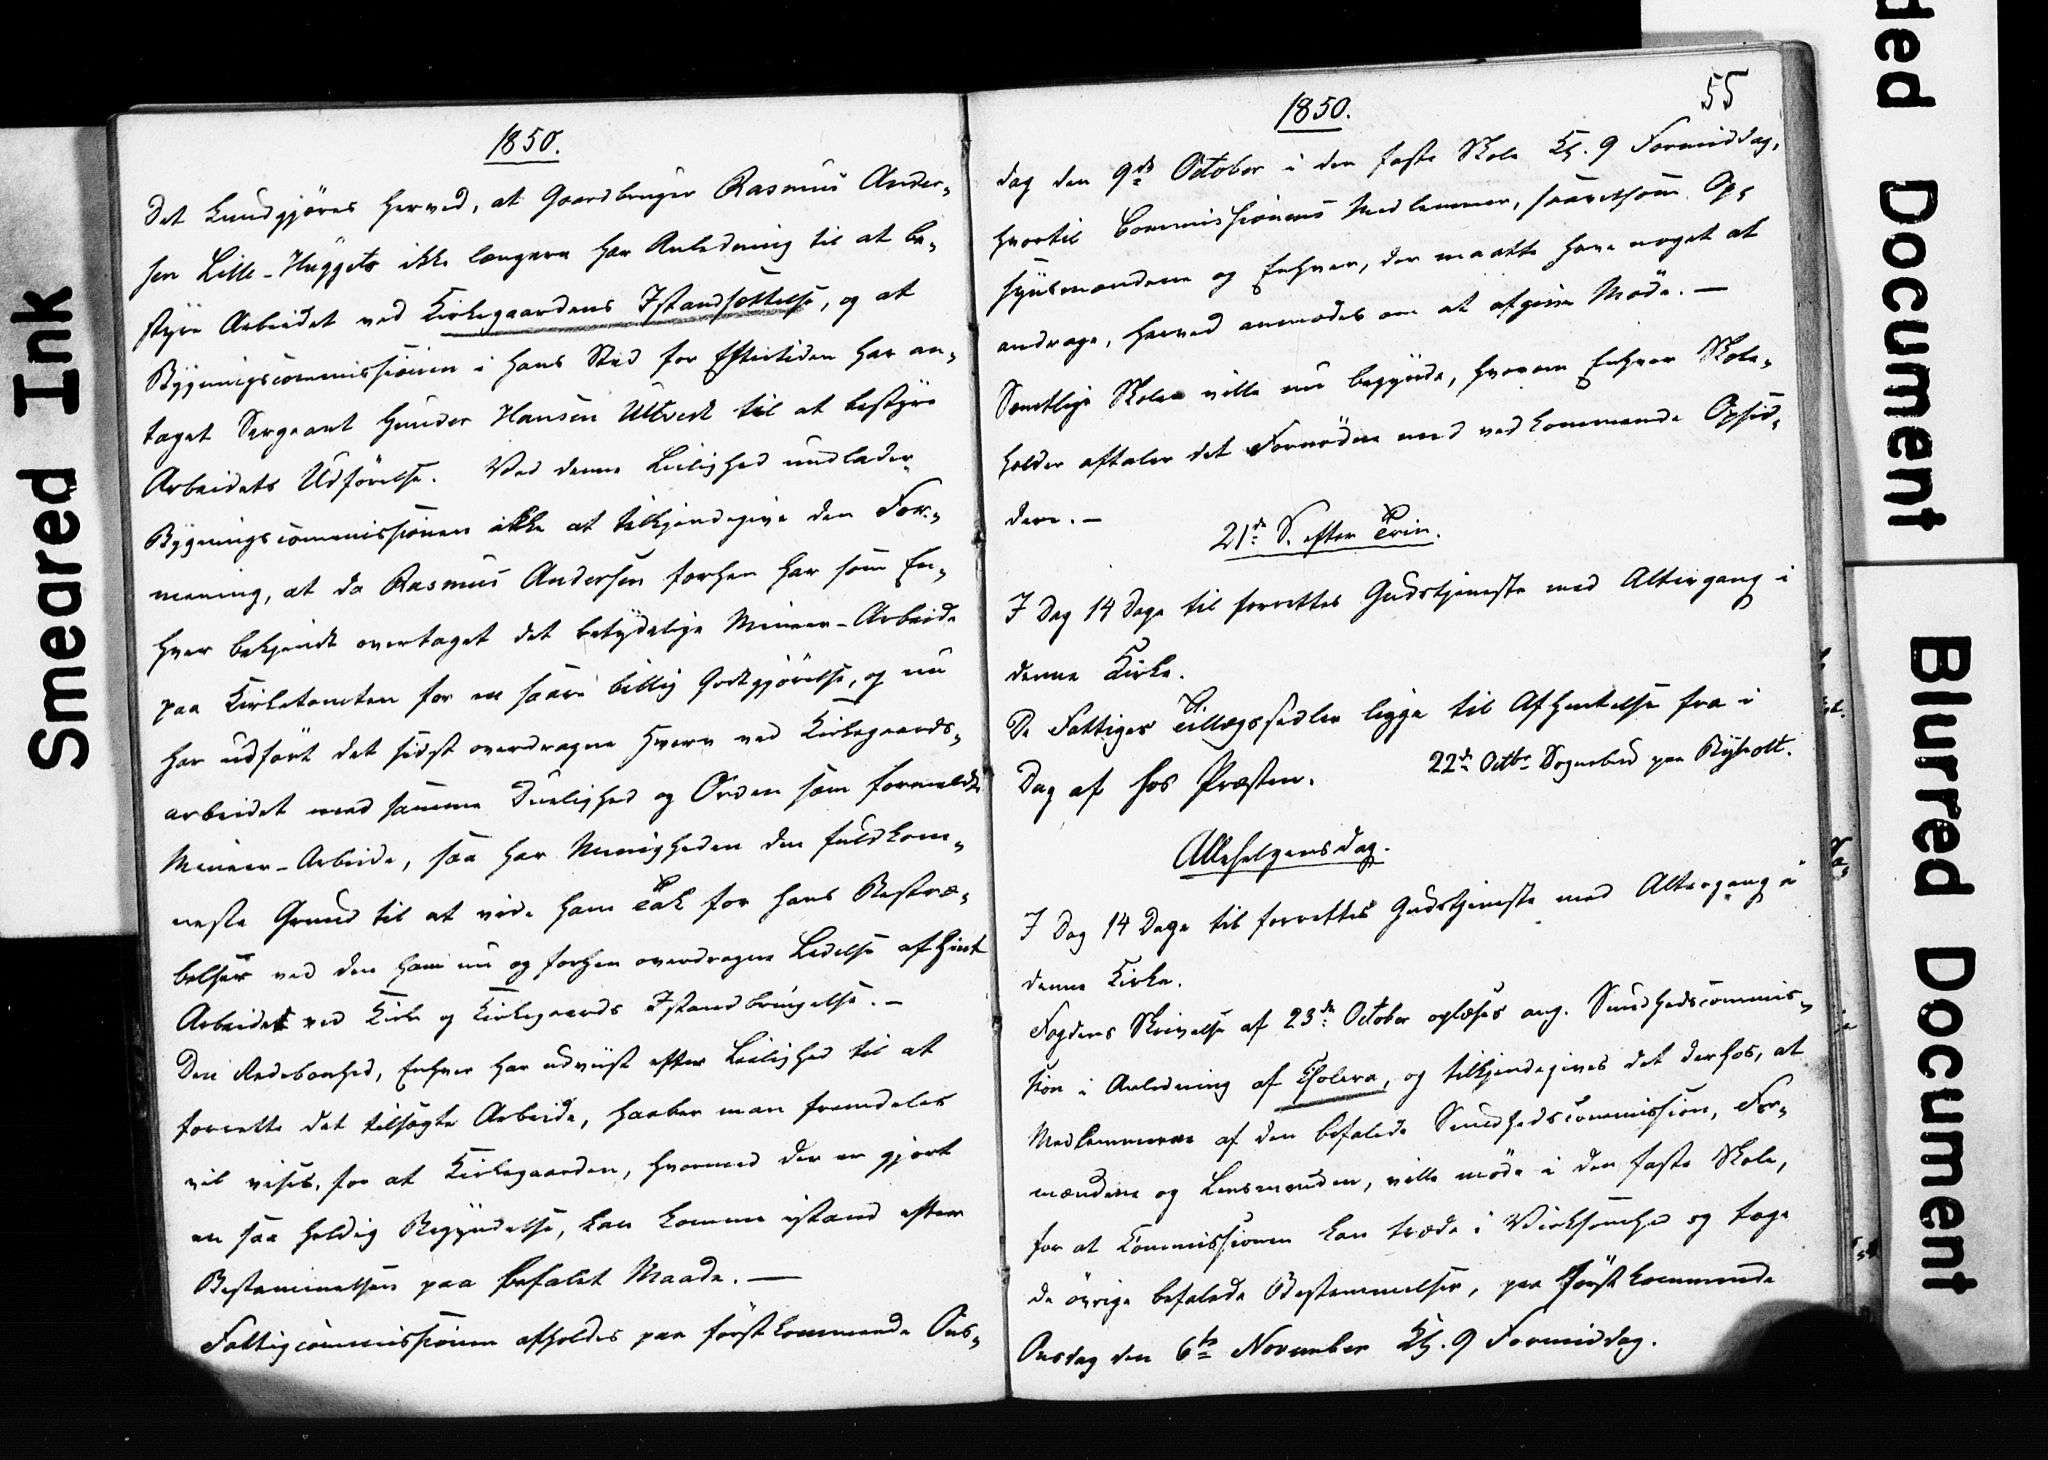 1850.
Det kundgjöres herved, at Gaardbruger Rasmus Ander-
sen Lille-Huggets ikke længere har Anledning til at be-
styre Arbeidet ved Kirkegaardens Istandsættelse, og at
Bygningscommissionen i hans Sted for Eftertiden har an-
taget Sergeant Gunder Hansen Ultvedt til at bestyre
Arbeidets Udførelse. Ved denne Leilighed undlader
Bygningscommissionen ikke at tilkjendegive den For-
mening, at da Rasmus Andersen forhen har som En-
hver bekjendt overtaget det betydelige Mineer-Arbeide
paa Kirketomten for en saare billig Godtgjörelse, og nu
har udfört det sidst overdragne Hverv ved Kirkegaards-
arbeidet med samme Duelighed og Orden som formeldte
Mineer-Arbeide, saa har Menigheden den fuldkom-
neste Grund til at vide ham Tak for hans Bestræ-
belser ved den ham nu og forhen overdragne Ledelse af hint
Arbeidet ved Kirke og Kirkegaards Istandbringelse. —
Den Redebonhed, Enhver har udviist efter Leilighed til at
forrette det tilsagte Arbeide, haaber man fremdeles
vil vises, for at Kirkegaarden, hvormed der er gjort
en saa heldig Begyndelse, kan komme istand efter
Bestemmelsen paa befalet Maade. —
Fattigcommissionen afholdes paa förstkommende Ons-
55
1850.
dag den 9de October i den faste Skole Kl. 9 Formiddag,
hvortil Commissionens Medlemmer, saavelsom Op-
synsmændene og Enhver, der maatte have noget at
andrage, herved anmodes om at afgive Møde. —
Samtlige Skoler ville nu begynde, hvorom Enhver Skole-
holder aftaler det Fornödne med vedkommende Opsid-
dere. —
21de S. efter Trin.
I Dag 14 Dage til forrettes Gudstjeneste med Altergang i
denne Kirke.
De Fattiges Tillægssedler ligge til Afhentelse fra i
Dag af hos Præsten.
22de Octbr Sognebud paa
Allehelgensdag.
I Dag 14 Dage til forrettes Gudstjeneste med Altergang i
denne Kirke.
Fogdens Skrivelse af 23de October oplæses ang. Sundhedscommis-
sion i Anledning af Cholera, og tilkjendegives det derhos, at
Medlemmerne af den befalede Sundhedscommission, For-
mændene og Lensmanden, ville möde i den faste Skole,
for at Commissionen kan træde i Virksomhed og tage
de övrige befalede Bestemmelser, paa förstkommende
Onsdag den 6te November Kl. 9 Formiddag.
Smeared Ink
ded Document
Blurred Document